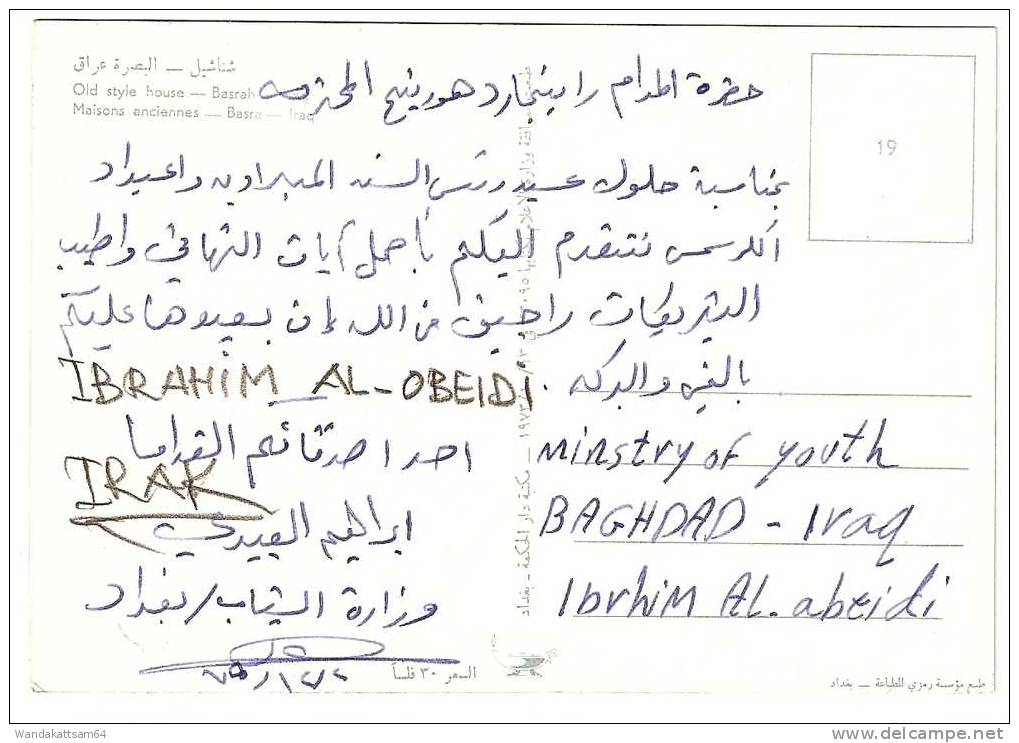 شناشيل — البصرة عراق
Old style house — Basrah
Maisons anciennes — Basra — Iraq
19
حضرة المدام راينجارد هورينج المحترمه
بمناسبة حلول عيد رئس السنه الميلاديه واعياد
الكرسمس نتقدم اليكم بأجمل آيات التهاني واطيب
التبريكات راجين من الله ان يعيدوها عليكم
بالخير والبركه
IBRAHIM AL-OBEIDI.
احد اصدقائكم القداما
IRAK
ابراهيم العبيدي
وزارة الشباب / بغداد
Minstry of youth
BAGHDAD - Iraq
Ibrhim AL. abeidi
مكتبة دار الحكمة - بغداد
السعر ٣٠ فلساً
طبع مؤسسة رمزي للطباعة — بغداد
Wandakattsam64
delcampe.net